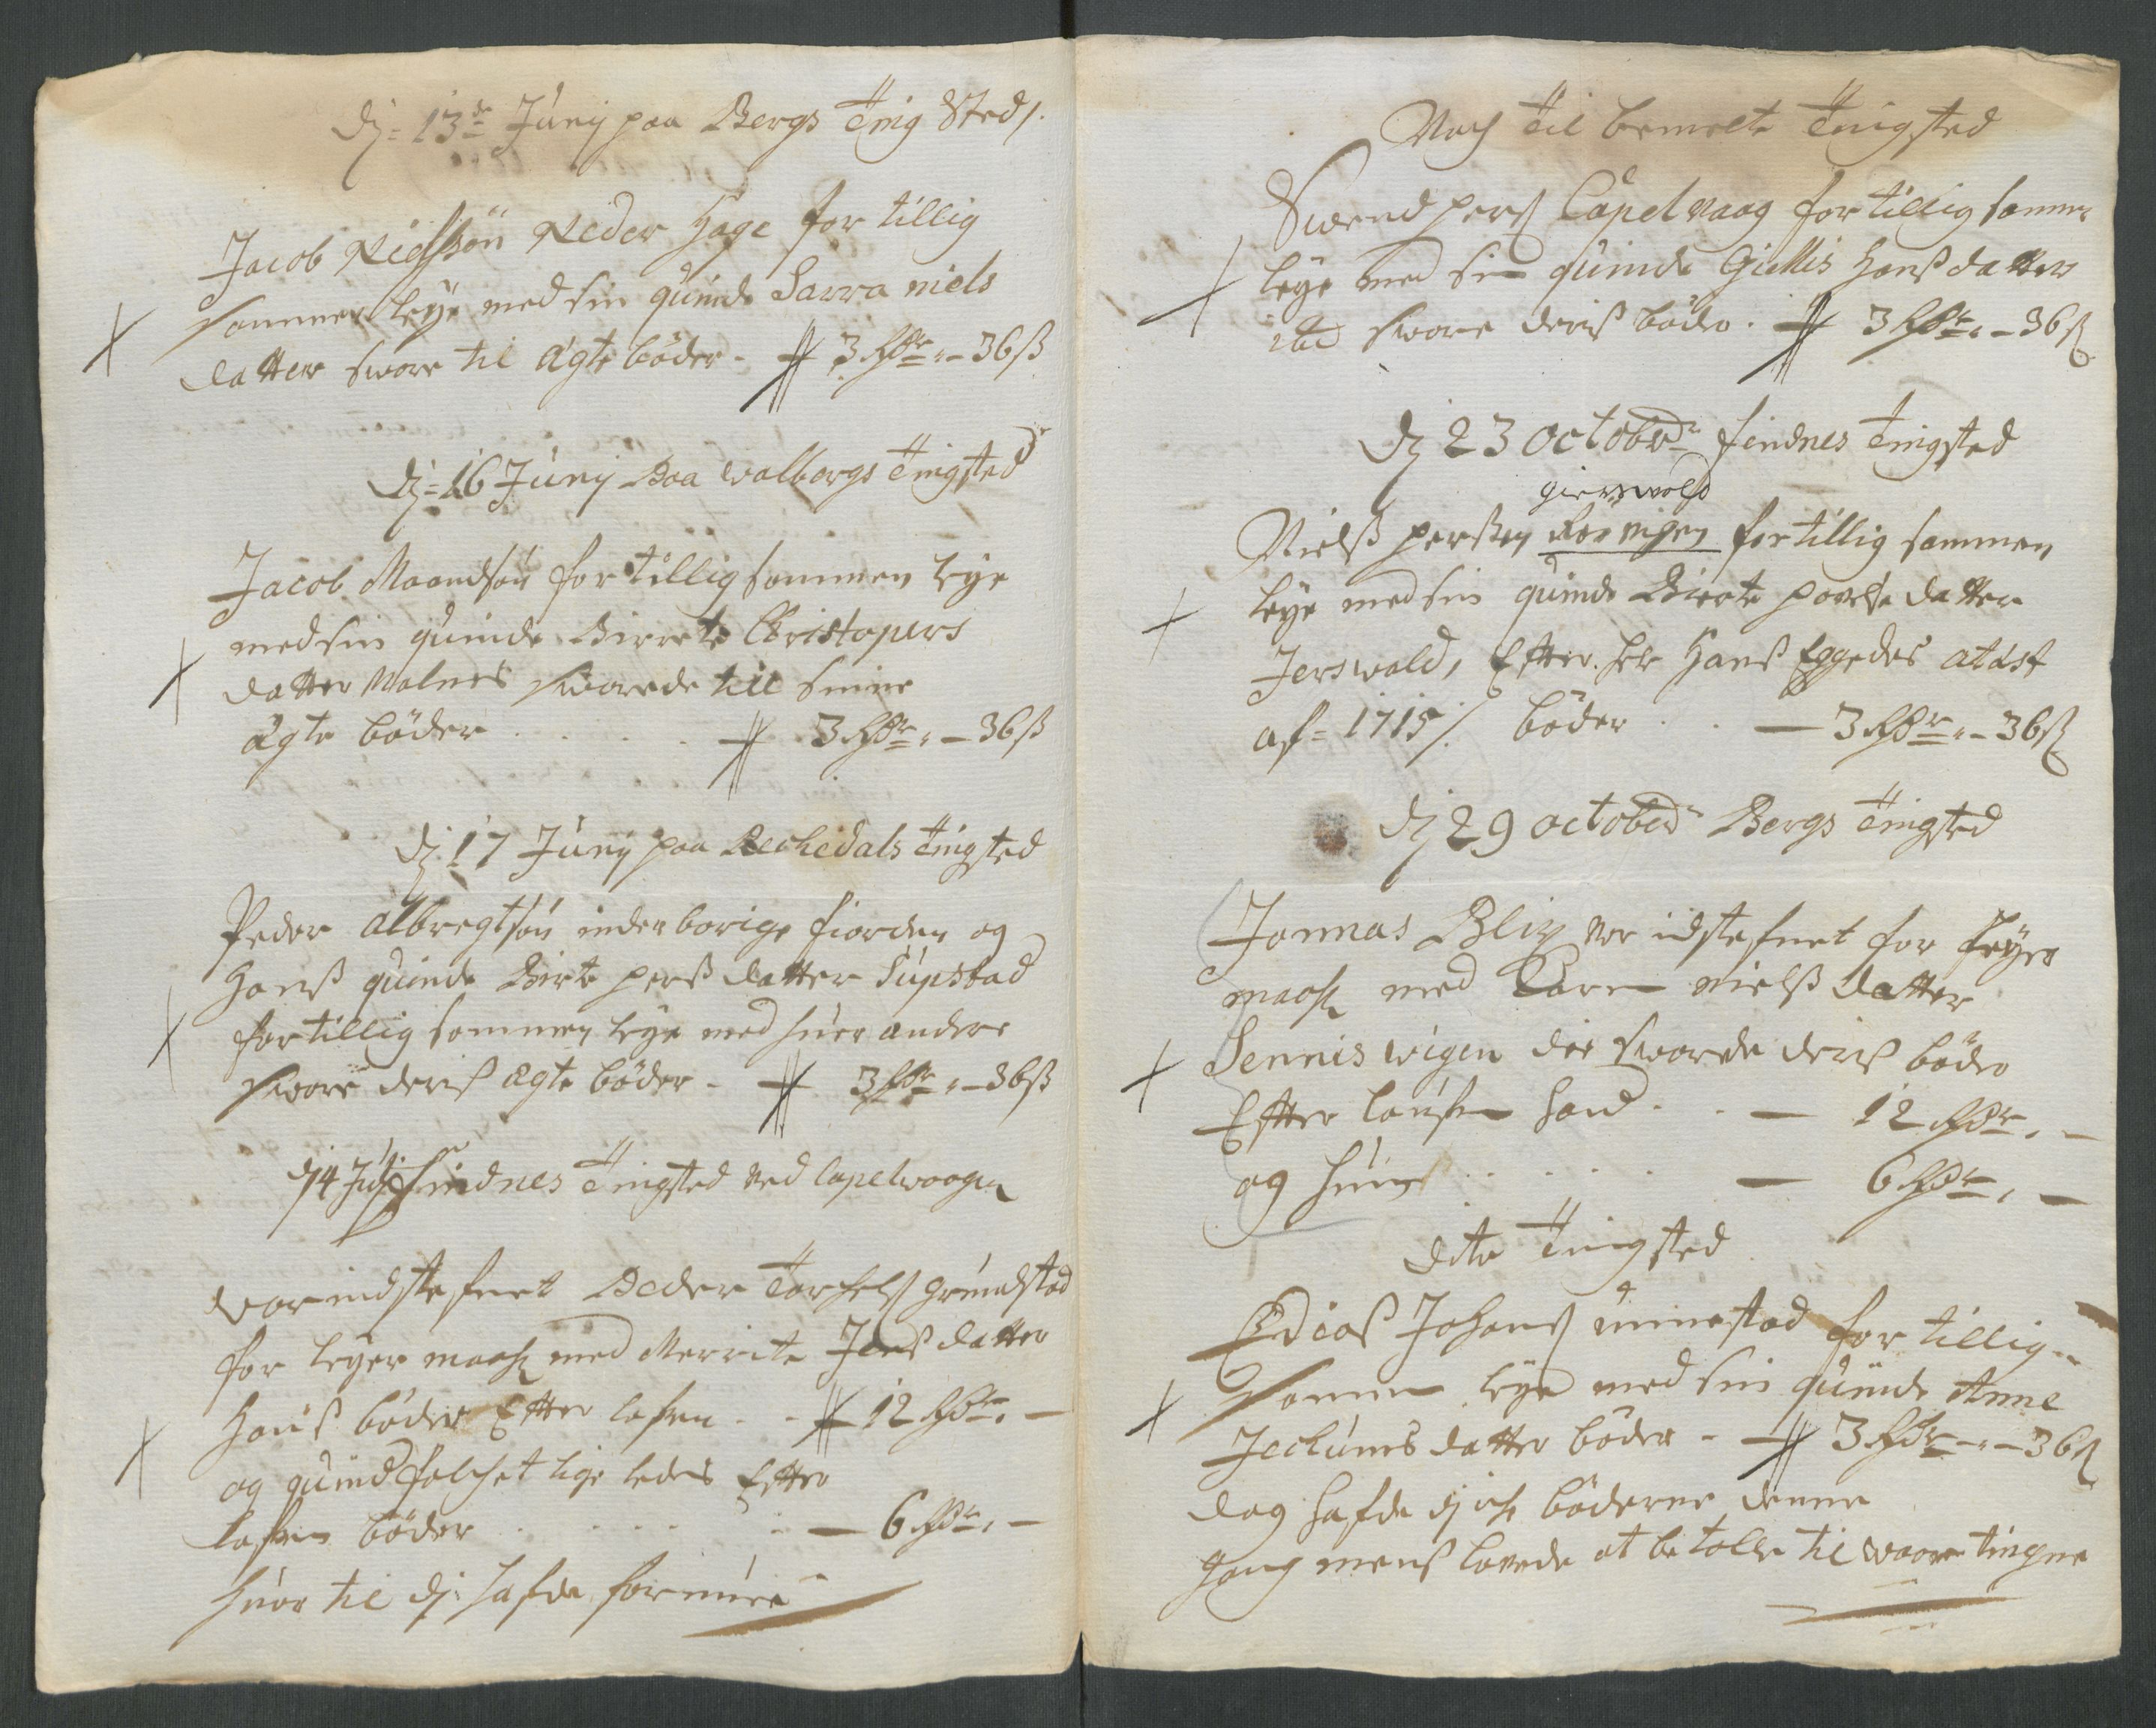 dj: 13de Junij paa Bergs Ting Sted /.
Jacob Nielssøn Neder Hage for tillig
sammen leye med sin quinde Sarra niels
datter svore til ægte bøder - 3 Rdr - 36 ß
dj: 16 Junij Paa walbergs Tingsted
Jacob Maandsøn for tillig sammen leye
med sin quinde Birrete Christopers
datter Malnes svorede till sinne
ægte bøder . . . . 3 Rdr - 36 ß
dj 17 Junij paa Rechedals Tingsted
Peder albregtsøn inden borige fiorden og
Hans quinde Birte perß datter Supstad
for tillig sammen leye med huer andre
svore deris ægte bøder - 3 Rdr - 36 ß
dj 4 Julj findnes Tingsted ved Capelwoogen
Vor indstefnet Peder Torchels grundstad
for leyer maahl med Merrite Jenß datter
Hans bøder Efter lofven - - 12 Rdr -
og quindfolchet lige ledes Efter
lofven bøder . . . . - 6 Rdr -
huor til dj hafde formue
Noch til bemelte Tingsted
Svend perß Capelvaag for tillig sammen
leye med sin quinde Giellis Hanß datter
ibd svore deris bøder . 3 Rdr - 36 ß
dj 23 octobr findnes Tingsted
gierswold
Nielß perßen for tillig sammen
leye med sin quinde Birete povels datter
Jerswold, Efter hr Hanß Eggedes atåst
af = 1715 /. bøder . . - 3 Rdr - 36 ß
dj 29 october Bergs Tingsted
Jonnas Blix vor idstefnet for leyer
maahl med Karen nielß datter
Sennis wigen die svorede deris bøder
Efter loufven hand - . - 12 Rdr -
og hun . . . . . - 6 Rdr -
dito Tingsted
Edias Johans unnestad for tillig-
sammen leye med sin quinde Anne
Jochums datter bøder - 3 Rdr - 36 ß
dog hafde dj ich bøderne denne
gang menß lovede at betalle til waare tingene